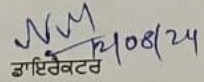 12/08/24
ਡਾਇਰੈਕਟਰ